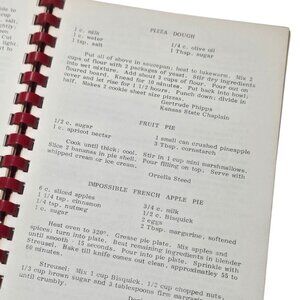 PIZZA DOUGH
1 c. milk
1 c. water
1 tsp. salt
1/4 c. olive oil
1 Tbsp. sugar
Put all of above in saucepan; heat to lukewarm. Mix 2
cups of flour with 2 packages of yeast. Stir dry ingredients
into wet mixture. Add about 3 cups of flour. Put out on
floured board. Knead for 10 minutes. Put back into bowl;
cover and let rise for 1 1/2 hours. Punch down; divide in
half. Makes 2 cookie sheet size pizzas.
Gertrude Phipps
Kansas State Chaplain
FRUIT PIE
1/2 c. sugar
1 c. apricot nectar
1 small can crushed pineapple
3 Tbsp. cornstarch
Cook until thick; cool. Stir in 1 cup mini marshmallows.
Slice 2 bananas in pie shell. Pour filling on top. Serve with
whipped cream or ice cream.
Orsella Steed
IMPOSSIBLE FRENCH APPLE PIE
6 c. sliced apples
1 1/4 tsp. cinnamon
1/4 tsp. nutmeg
1 c. sugar
3/4 c. milk
1/2 c. Bisquick
2 eggs
2 Tbsp. margarine, softened
Heat oven to 325°. Grease pie plate. Mix apples and
spices; turn into plate. Beat remaining ingredients in blender
15 seconds. Pour into pie plate. Sprinkle with
Streusel. Bake till knife comes out clean, approximately 55 to
minutes.
Streusel. Mix 1 cup Bisquick, 1/2 cup chopped nuts,
1/3 cup brown sugar and 3 tablespoons firm margarine
until crumbly.